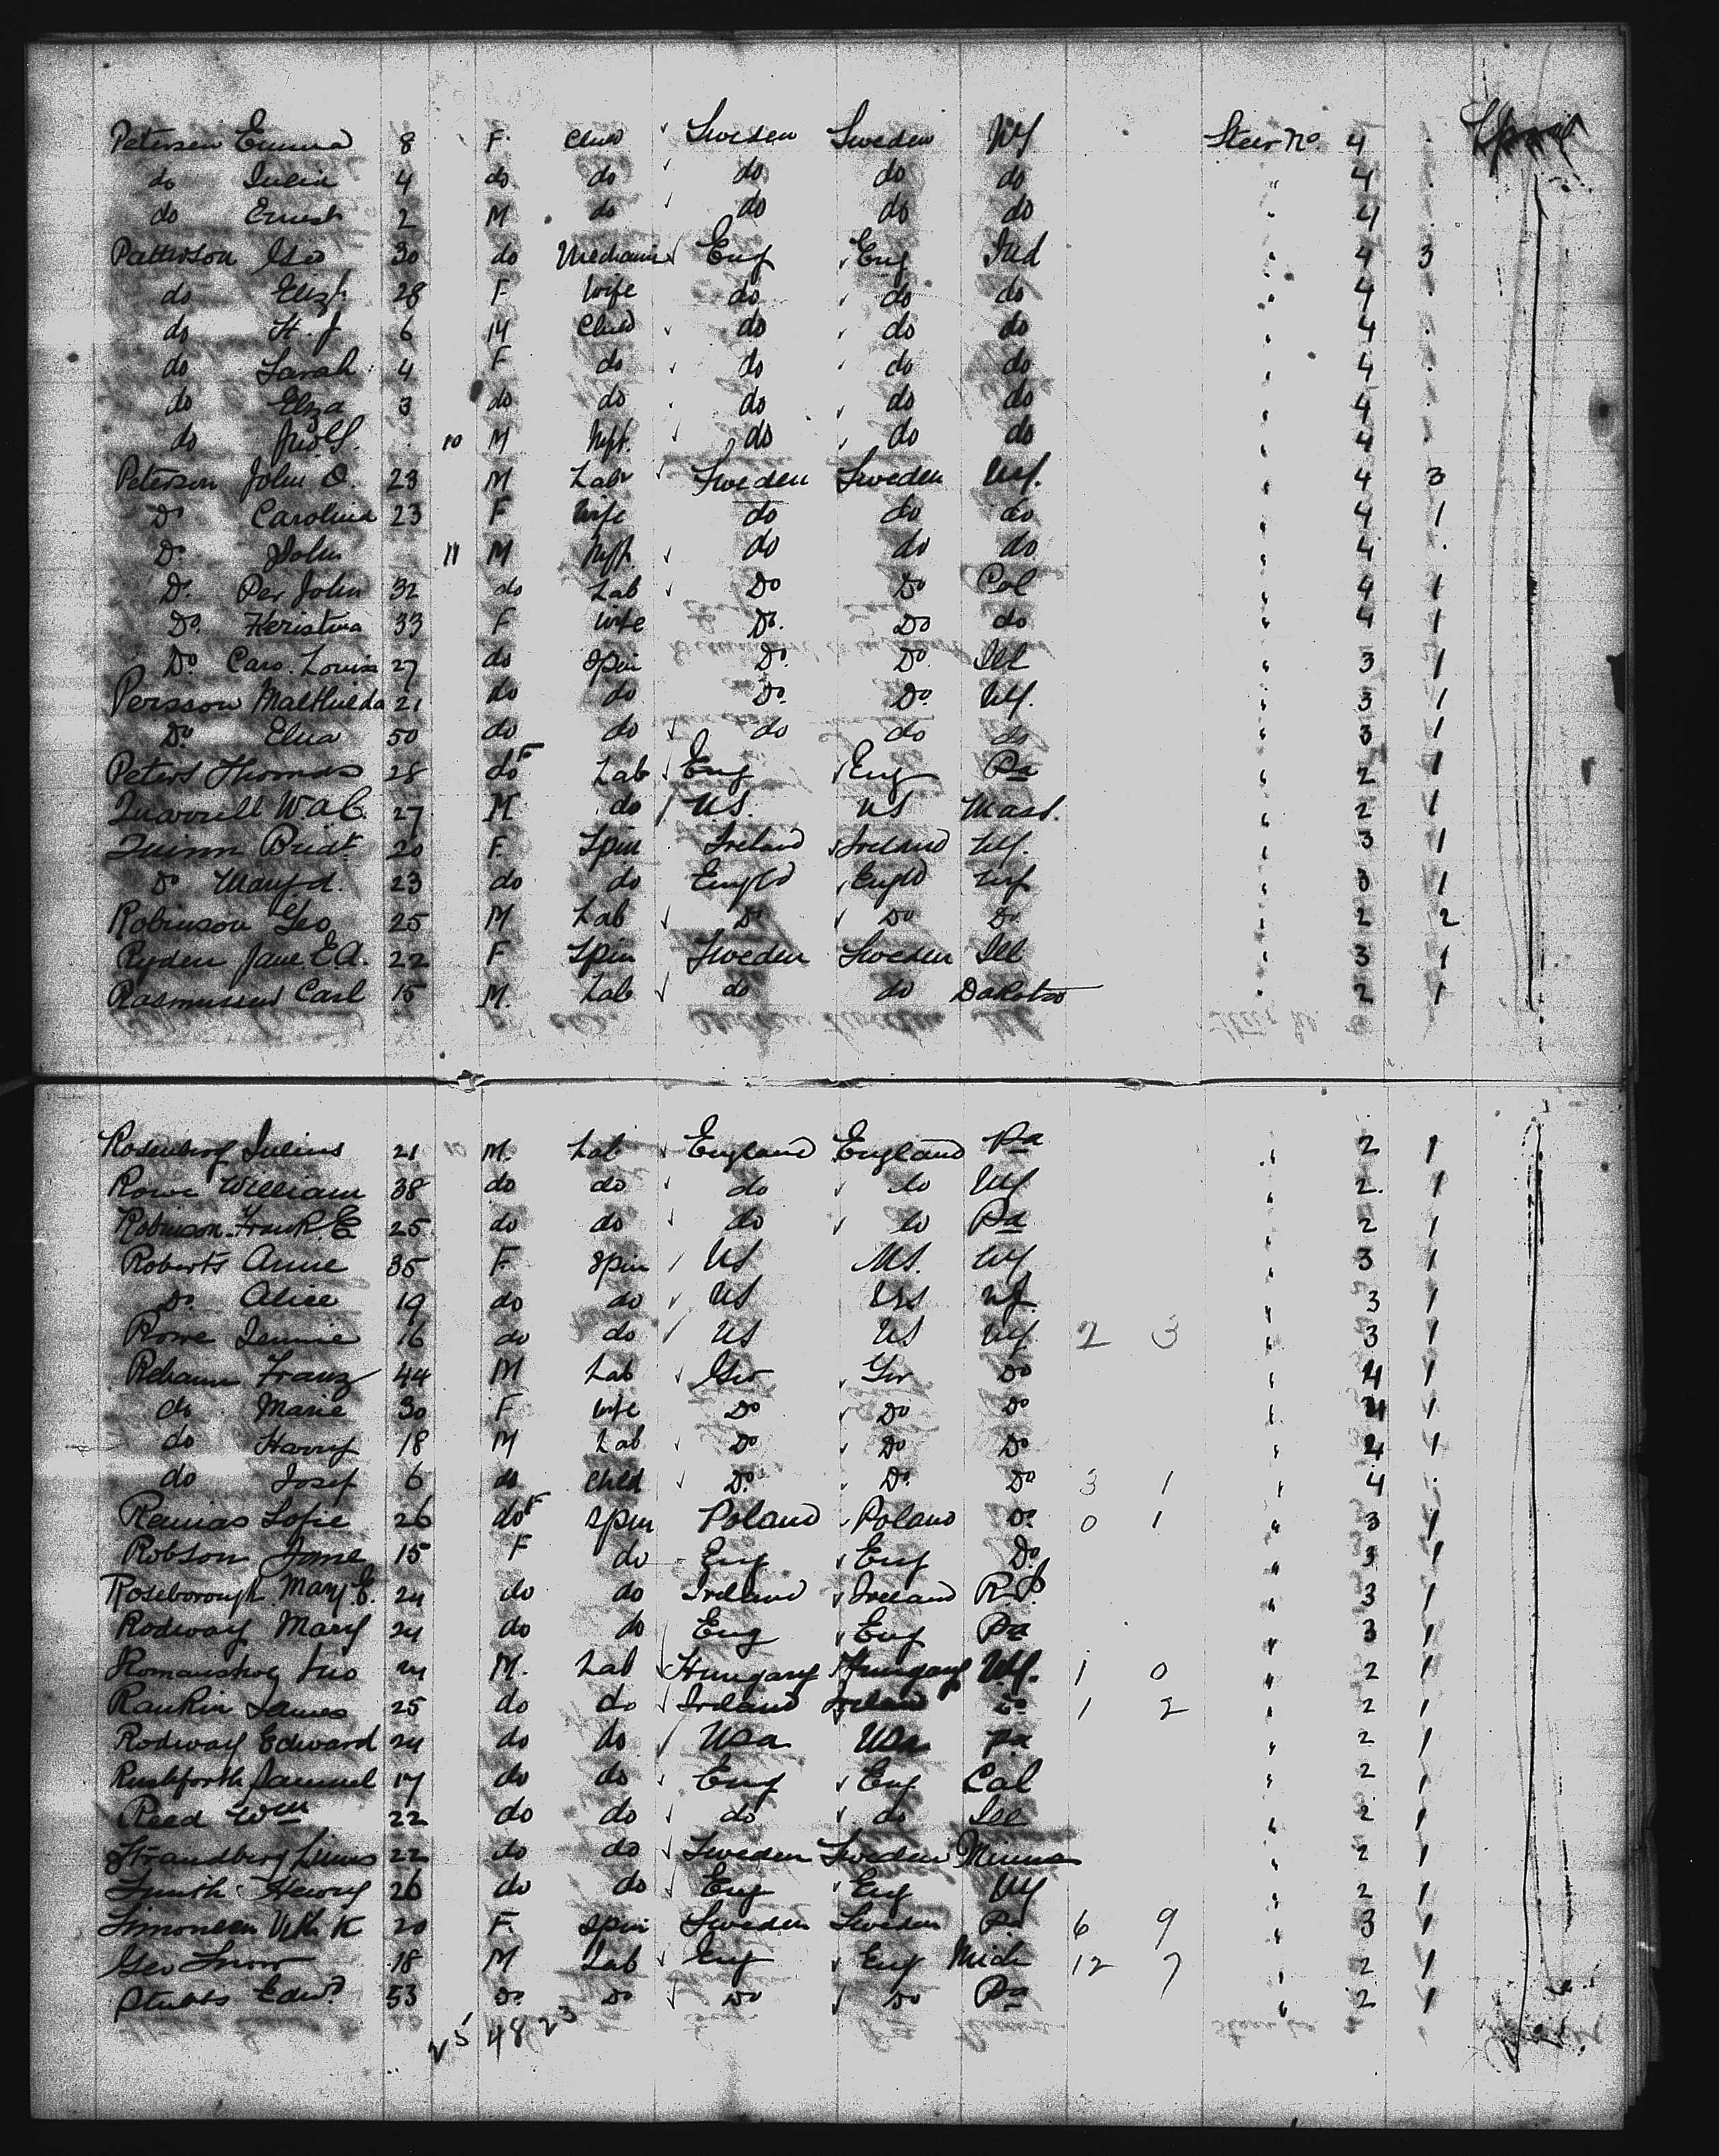 Petersen Emma 8 F. Child Sweden Sweden NY Steer No. 4
do Julia 4 do do do do do " 4
do Ernest 2 M do do do do " 4
Patterson Geo 30 do Mechanic Eng Eng Ind " 4 3
do Elizth 28 F Wife do do do " 4
do H. J. 6 M Child do do do " 4
do Sarah 4 F do do do do " 4
do Eliza 3 do do do do do " 4
do 10 M Inft. do do do " 4
Peterson John O. 23 M Labr Sweden Sweden NY. " 4 3
Do Carolina 23 F Wife do do do " 4 1
Do John 11 M Inft. do do do " 4
Do Per John 32 do Lab Do Do Col " 4 1
Do. Kristina 33 F Wife Do. Do do " 4 1
Do. Caro. Louisa 27 do Spin Do. Do. Ill " 3 1
Persson Malthilda 21 do do Do. Do. NY. " 3 1
Do. Elna 50 do do do do do " 3 1
Peters Thomas 28 do F Lab Eng Eng Pa " 2 1
27 M do US. US Mass. " 2 1
Quinn Bridt 20 F. Spin Ireland Ireland NY. " 3 1
Do Mary A. 23 do do Engld Engld NY " 3 1
Robinson Geo 25 M Lab Do Do Do " 2 2
Ryden Jane E.A. 22 F Spin Sweden Sweden Ill " 3 1
Rasmussen Carl 15 M. Lab do do Dakota " 2 1
Rosenberg Julius 21 M. Lab England England Pa " 2 1
Rowe William 38 do do do do NY " 2. 1
Robinson Frank E 25 do do do do Pa " 2 1
Roberts Anne 35 F Spin US US. NY " 3 1
Do. Alice 19 do do US US NY " 3 1
Rowe Jennie 16 do do US US NY 2 3 " 3 1
Franz 44 M Lab Ger Ger Do " 4 1
do Marie 30 F Wife Do Do Do " 4 1
do Harry 18 M Lab Do Do Do " 4 1
do Josef 6 do Child Do. Do. Do 3 1 " 4
Sofie 26 do F Spin Poland Poland Do 0 1 " 3 1
Robson Jane 15 F do Eng Eng Do " 3 1
Roseborough Mary E. 24 do do Ireland Ireland R.I. " 3 1
Rodway Mary 24 do do Eng Eng Pa " 3 1
24 M. Lab Hungary Hungary NY. 1 0 " 2 1
Rankin James 25 do do Ireland Ireland Do 1 2 " 2 1
Rodway Edward 24 do do USa USa Pa " 2 1
Rushforth Samuel 17 do do Eng Eng Cal " 2 1
Reed Wm 22 do do do do Ill " 2 1
Strandberg Linus 22 do do Sweden Sweden Minna " 2 1
Smith Henry 26 do do Eng Eng NY " 2 1
Simonsen 20 F. Spin Sweden Sweden Pa 6 9 " 3 1
Geo Snow 18 M Lab Eng Eng Mich 12 7 " 2 1
Stubbs Edwd 53 Do Do Do Do Pa " 2 1
25 48 23